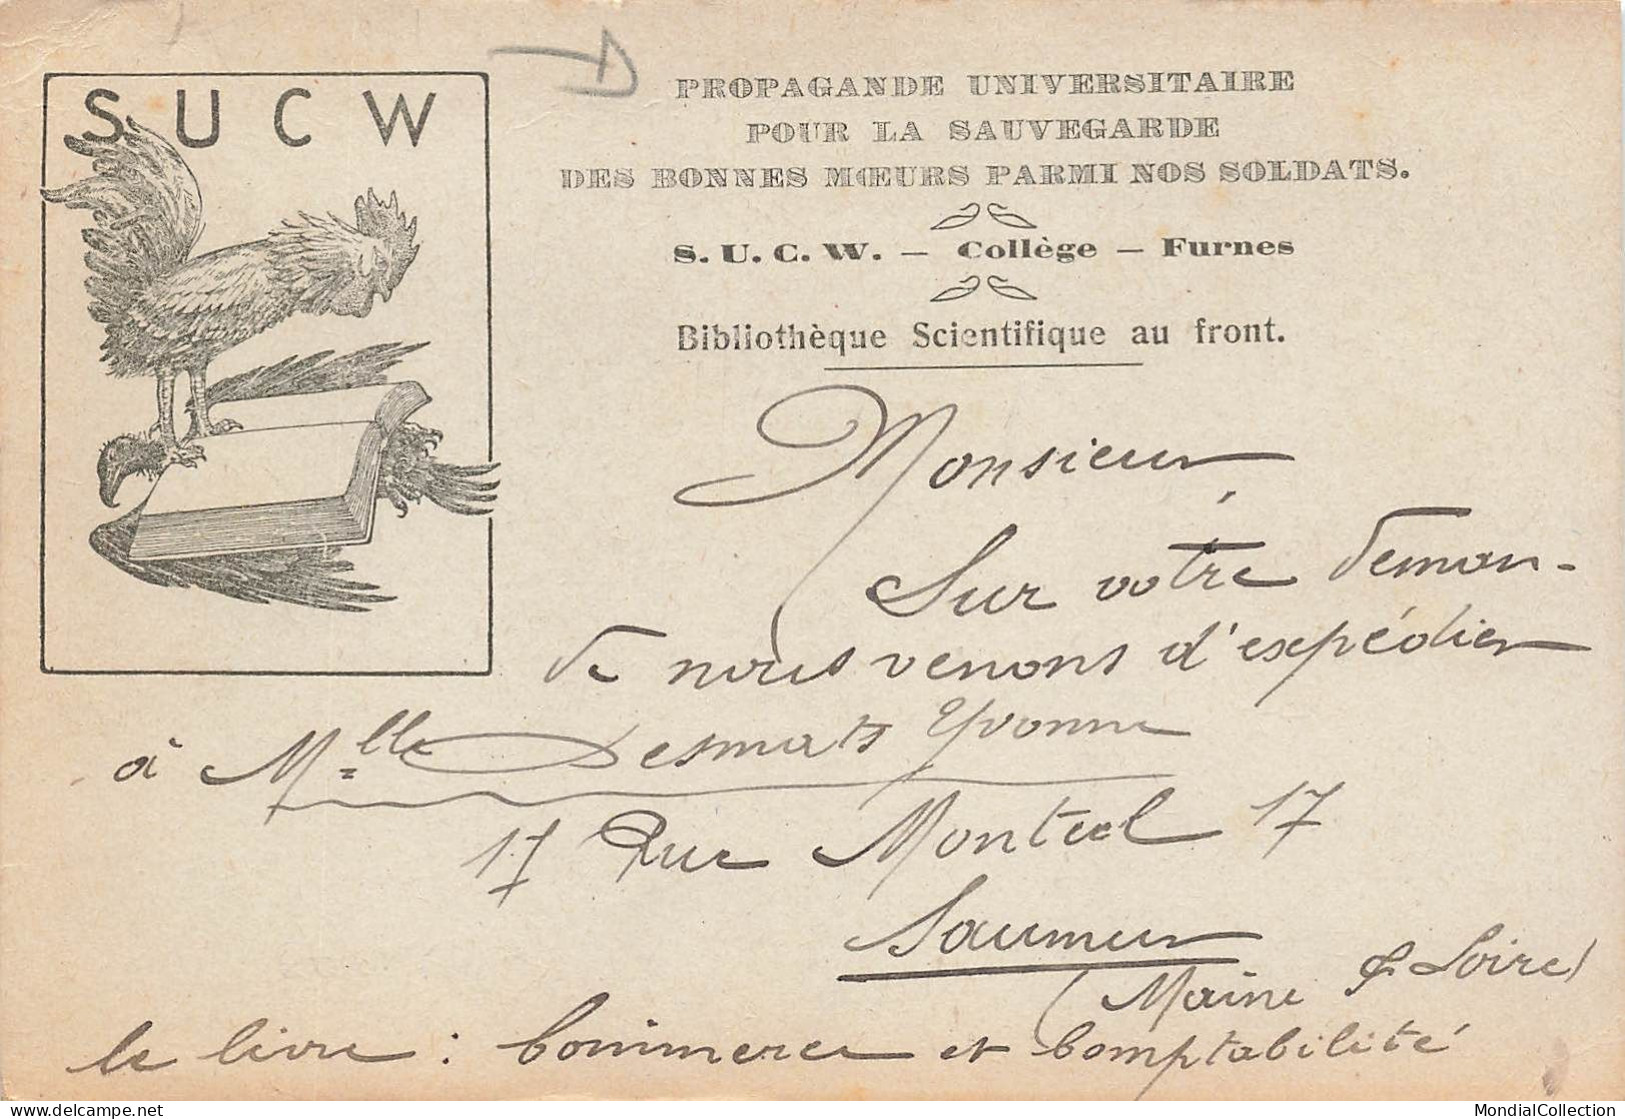 S U C W
PROPAGANDE UNIVERSITAIRE
POUR LA SAUVEGARDE
DES BONNES MŒURS PARMI NOS SOLDATS.
S. U. C. W. — Collège — Furnes
Bibliothèque Scientifique au front.
Monsieur
Sur votre deman-
de nous venons d'expédier
à Mlle Desmats Yvonne
17 Rue Montcel 17
Saumur
(Maine & Loire)
le livre : Commerce et Comptabilité
MondialCollection